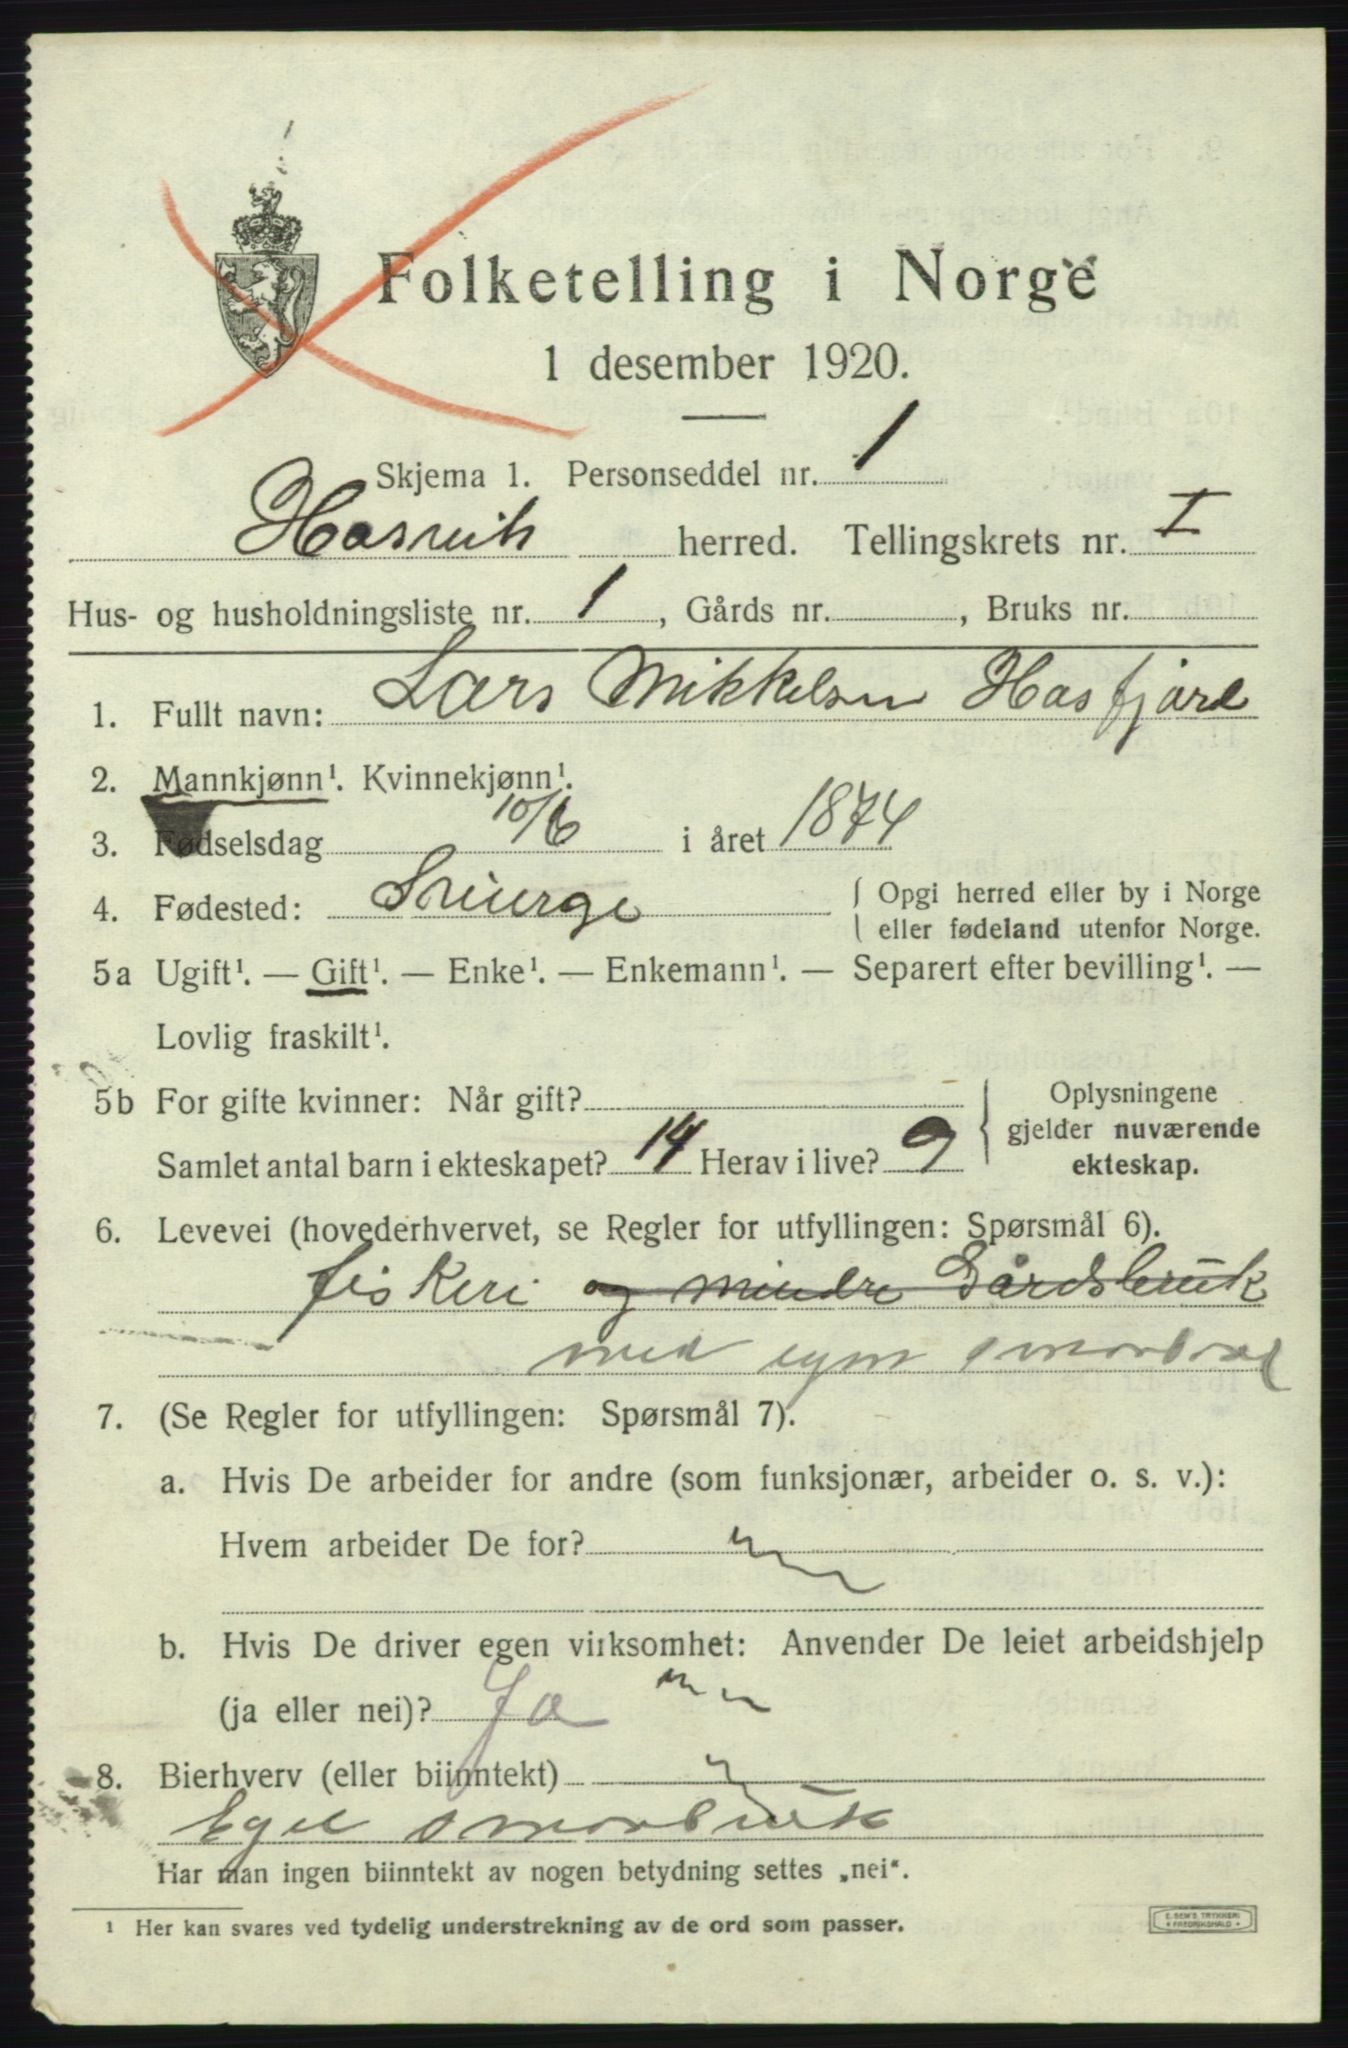 Folketelling i Norge
1 desember 1920.
Skjema 1. Personseddel nr. 1
Hasvik herred. Tellingskrets nr. I
Hus- og husholdningsliste nr. 1, Gårds nr. , Bruks nr.
1. Fullt navn: Lars Mikkelsen Hasfjord
2. Mannkjønn¹. Kvinnekjønn¹.
3. Fødselsdag 10/6 i året 1874
4. Fødested: Sverge { Opgi herred eller by i Norge
eller fødeland utenfor Norge.
5a Ugift¹. — Gift¹. — Enke¹. — Enkemann¹. — Separert efter bevilling¹. —
Lovlig fraskilt¹.
5b For gifte kvinner: Når gift?
Samlet antal barn i ekteskapet? 14 Herav i live? 9
{ Oplysningene
gjelder nuværende
ekteskap.
6. Levevei (hovederhvervet, se Regler for utfyllingen: Spørsmål 6).
fiskeri og mindre Gårdsbruk
med egen
7. (Se Regler for utfyllingen: Spørsmål 7).
a. Hvis De arbeider for andre (som funksjonær, arbeider o. s. v.):
Hvem arbeider De for?
b. Hvis De driver egen virksomhet: Anvender De leiet arbeidshjelp
(ja eller nei)? Ja
8. Bierhverv (eller biinntekt)
Eget smaabruk
Har man ingen biinntekt av nogen betydning settes „nei“.
¹ Her kan svares ved tydelig understrekning av de ord som passer.
E. SEM'S TRYKKERI
* FREDRIKSHALD *